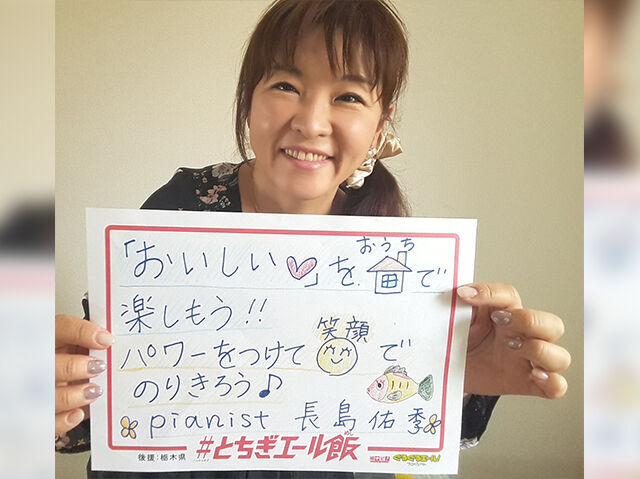 「おいしい♡」を おうち で
楽しもう!!
パワーをつけて 笑顔 で
のりきろう♪
pianist 長島 佑季
後援:栃木県 #とちぎエール飯